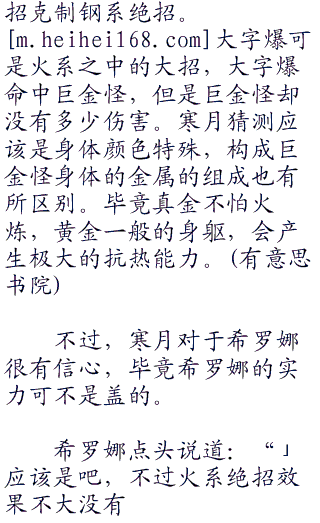 招克制钢系绝招。
[m.heihei168.com]大字爆可
是火系之中的大招，大字爆
命中巨金怪，但是巨金怪却
没有多少伤害。寒月猜测应
该是身体颜色特殊，构成巨
金怪身体的金属的组成也有
所区别。毕竟真金不怕火
炼，黄金一般的身躯，会产
生极大的抗热能力。(有意思
书院)
不过，寒月对于希罗娜
很有信心，毕竟希罗娜的实
力可不是盖的。
希罗娜点头说道：“」
应该是吧，不过火系绝招效
果不大没有